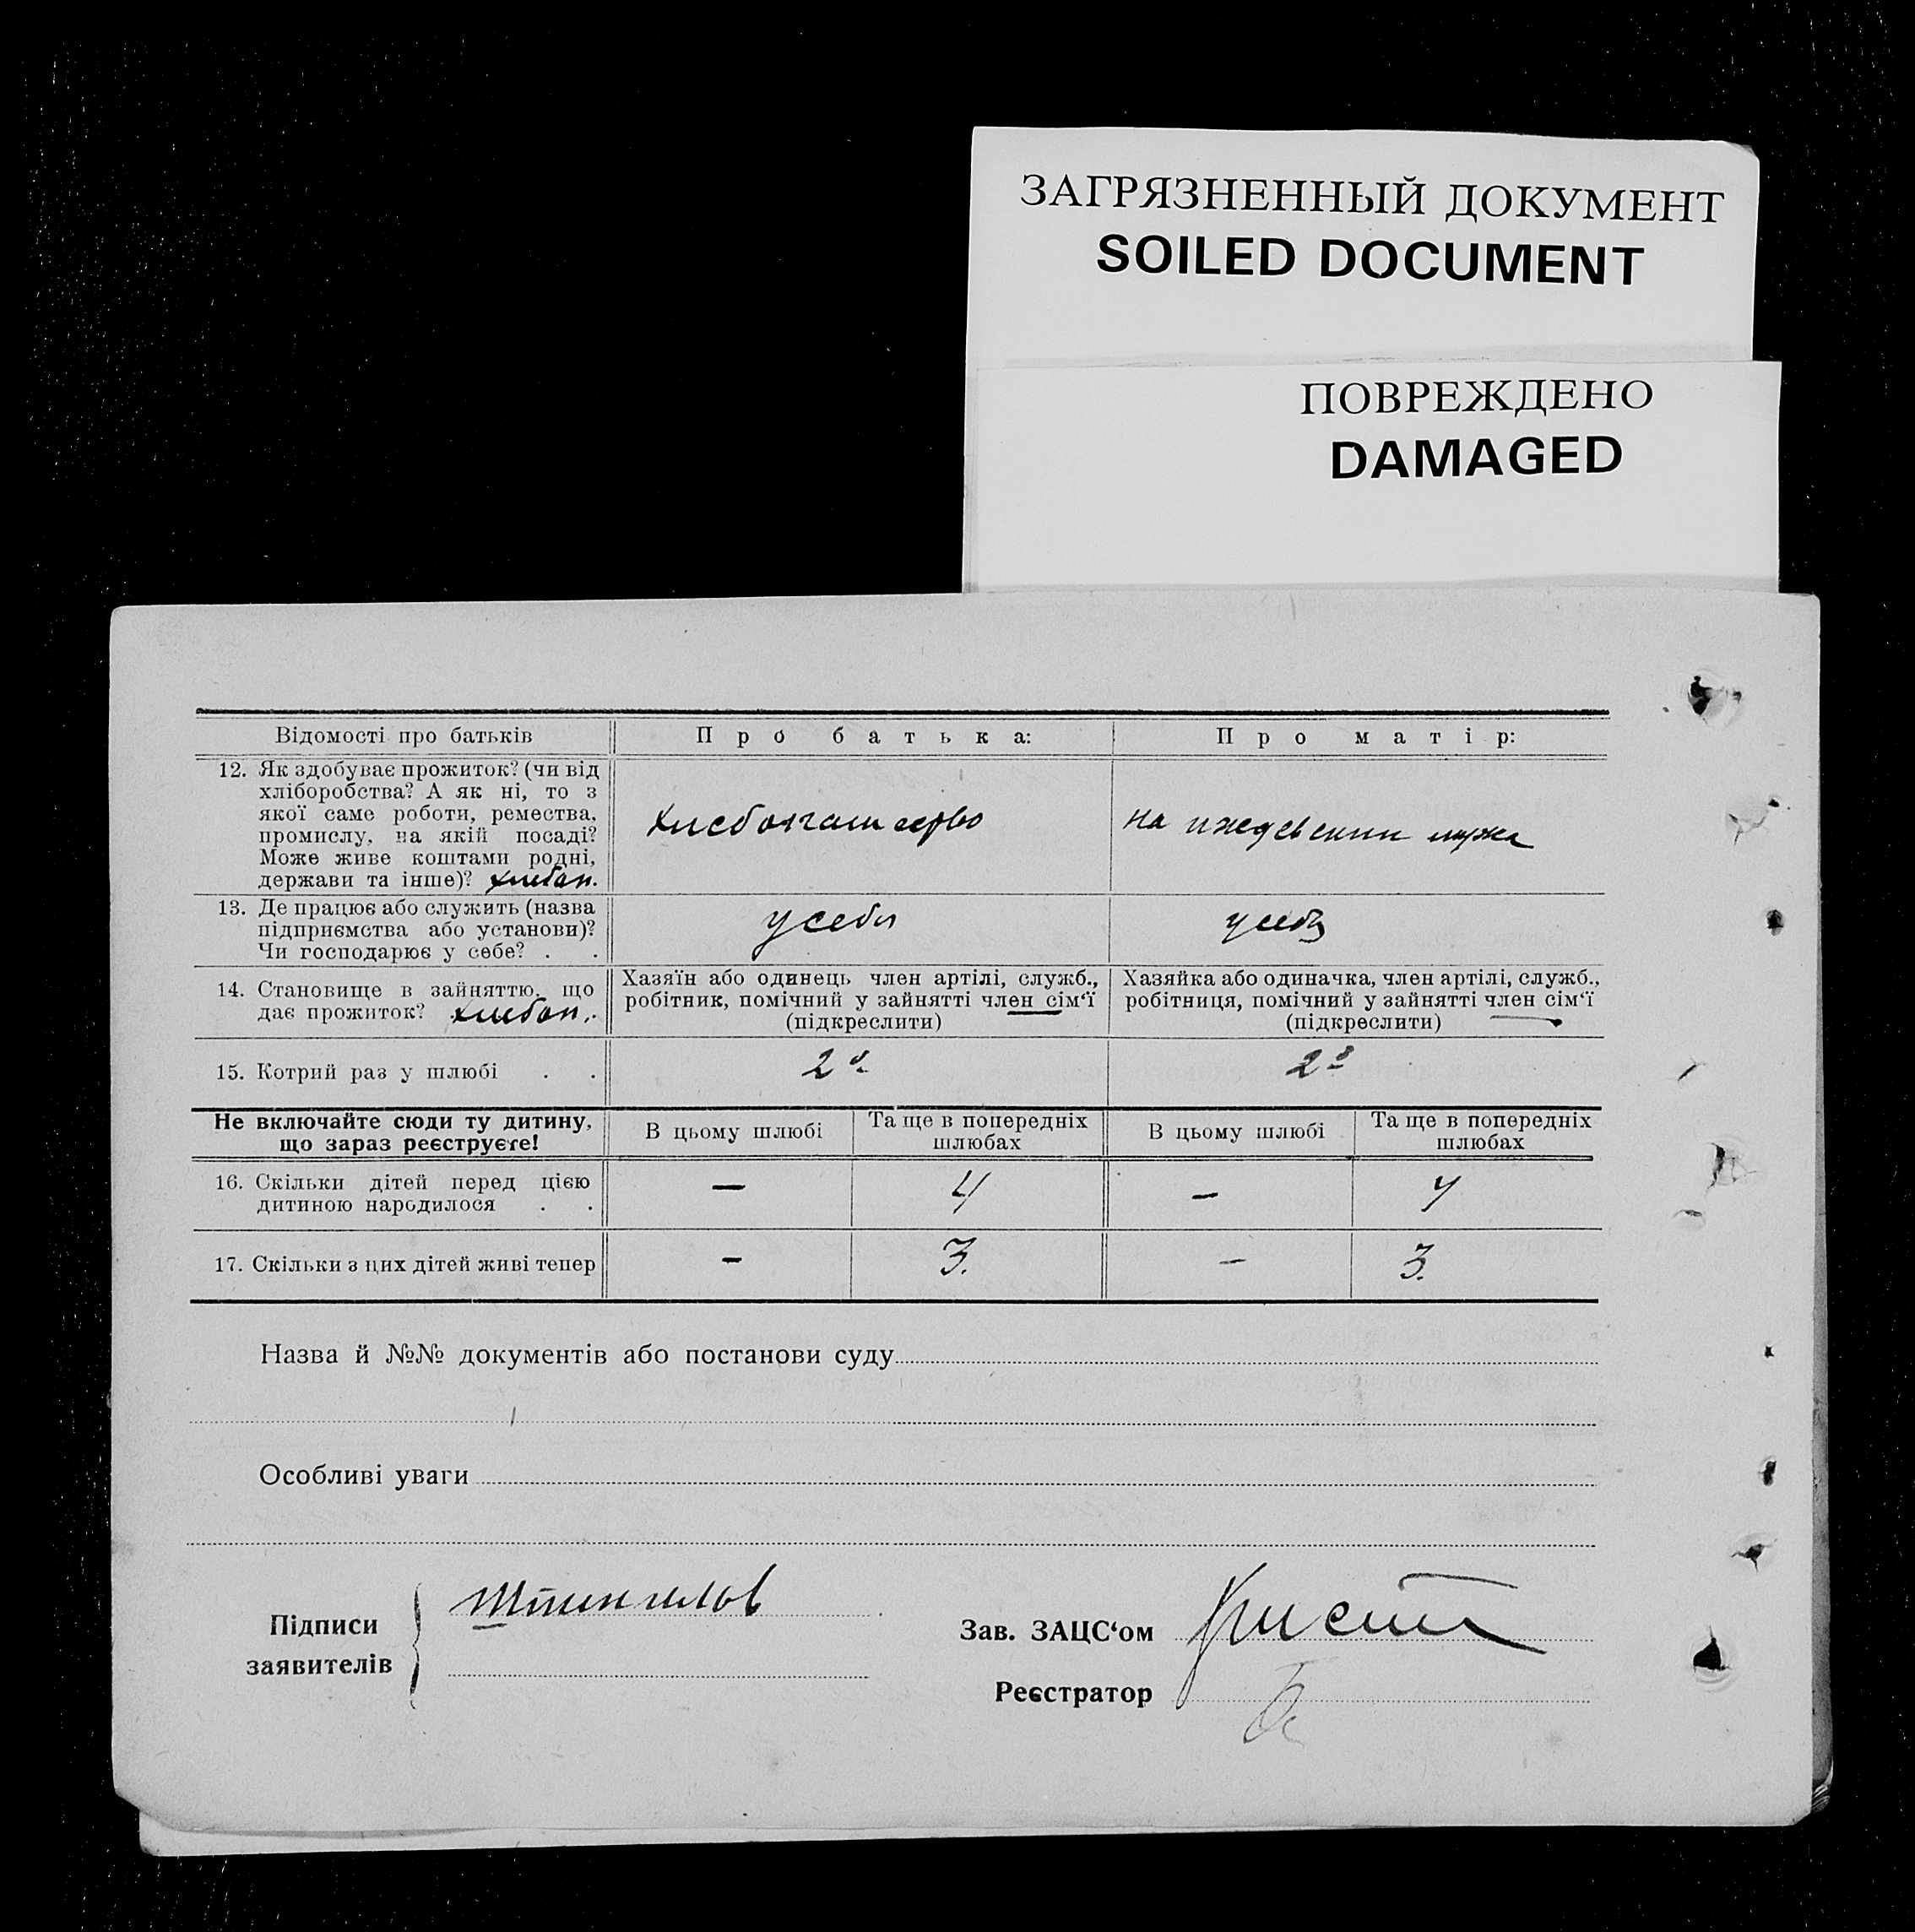 ЗАГРЯЗНЕННЫЙ ДОКУМЕНТ
SOILED DOCUMENT
ПОВРЕЖДЕНО
DAMAGED
Відомості про батьків
Про батька:
Про матір:
12. Як здобуває прожиток? (чи від
хліборобства? А як ні, то з
якої саме роботи, ремества,
промислу, на якій посаді?
Може живе коштами родні,
держави та інше)? хлебоп.
хлебопашество
на иждевении мужа
13. Де працює або служить (назва
підприємства або установи)?
Чи господарює у себе? . .
у себя
у себя
14. Становище в зайняттю, що
дає прожиток? хлебоп.
Хазяїн або одинець член артілі, служб.,
робітник, помічний у зайнятті член сім'ї
(підкреслити)
Хазяйка або одиначка, член артілі, служб.,
робітниця, помічний у зайнятті член сім'ї
(підкреслити)
15. Котрий раз у шлюбі . .
2й
2й
Не включайте сюди ту дитину,
що зараз реєструєте!
В цьому шлюбі
Та ще в попередніх
шлюбах
В цьому шлюбі
Та ще в попередніх
шлюбах
16. Скільки дітей перед цією
дитиною народилося . .
—
4
—
4
17. Скільки з цих дітей живі тепер
—
3.
—
3.
Назва й №№ документів або постанови суду
Особливі уваги
Підписи
заявителів
Зав. ЗАЦС'ом
Реєстратор